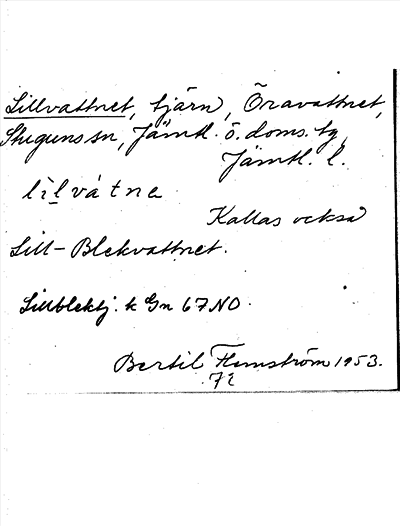 Lillvattnet, tjärn, Öravattnet,
Stuguns sn, Jämtl. ö. doms. tg,
Jämtl. l.
lìlvátne
Kallas också
Lill-Blekvattnet.
Lillblektj. k Gn 67 NO.
Bertil Flemström 1953.
72